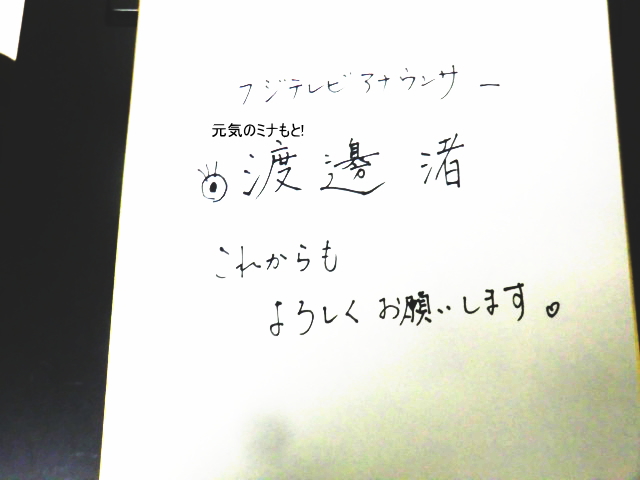 フジテレビアナウンサー
元気のミナもと!
渡邊 渚
これからも
よろしくお願いします。